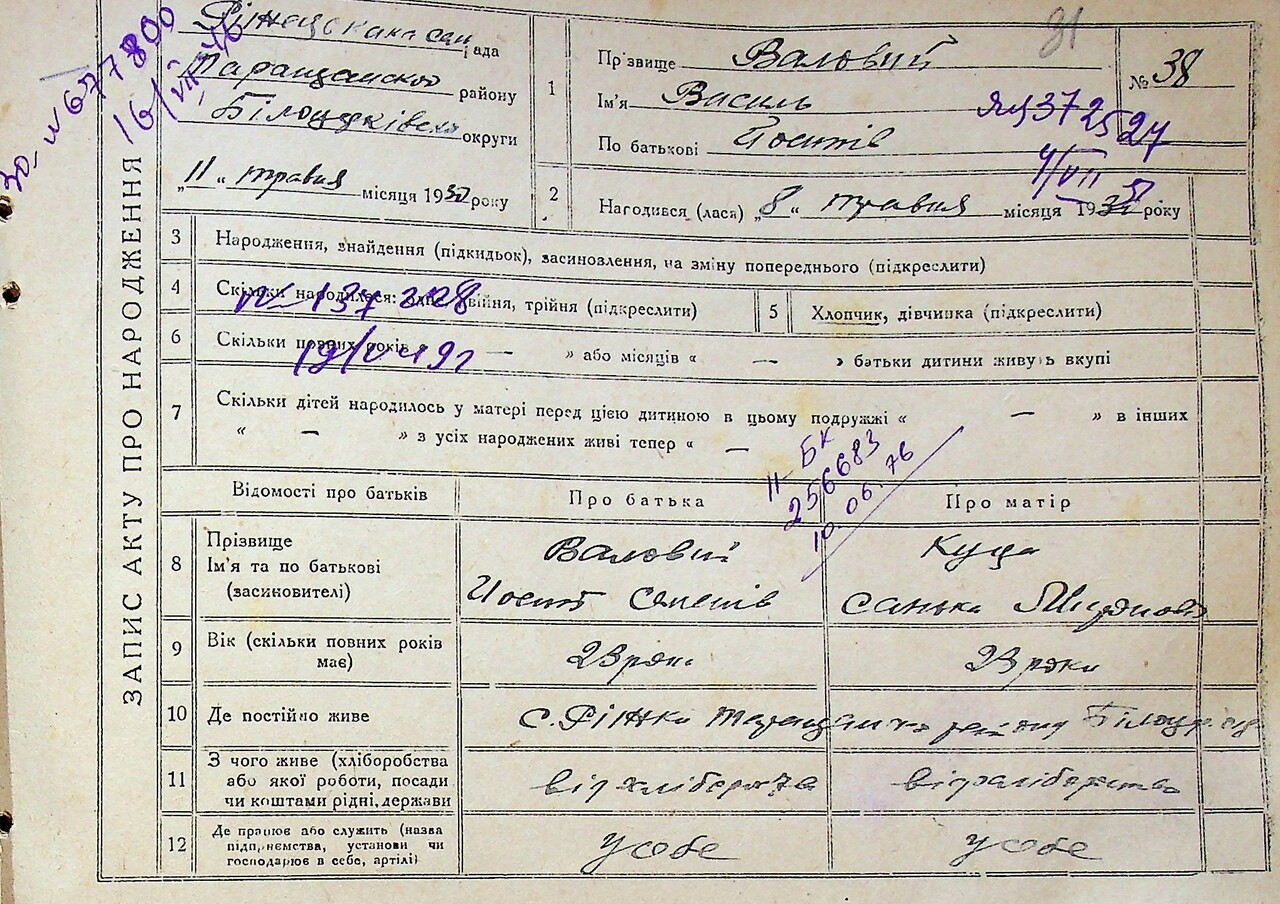 ЗАПИС АКТУ ПРО НАРОДЖЕННЯ
30- № 677800
16/VII 46
81
рада
Таращанської району
Білоцерківської округи
„11“ травня місяця 1932 року
1
Прізвище Валовий
Ім'я Василь
По батькові Йосипів
№ 38
ЯЦ 372527
4/VII 51
2
Народився (лася) „8“ травня місяця 1932 року
3
Народження, знайдення (підкидьок), засиновлення, на зміну попереднього (підкреслити)
4
Скільки народилося: двійня, трійня (підкреслити)
№ 137228
5
Хлопчик, дівчинка (підкреслити)
6
Скільки повних років « — » або місяців « — » батьки дитини живуть вкупі
7
Скільки дітей народилось у матері перед цією дитиною в цьому подружжі « — » в інших
« — » з усіх народжених живі тепер « —
II-БК
256683
10.06.76
Відомості про батьків
Про батька
Про матір
8
Прізвище
Ім'я та по батькові
(засиновителі)
Валовий
Йосип Семенів
Куца
Санька
9
Вік (скільки повних років
має)
23 роки
23 роки
10
Де постійно живе
с. Ріжки Таращанського району Білоцер.
11
З чого живе (хліборобства
або якої роботи, посади
чи коштами рідні, держави
від хліборобства
від хліборобства
12
Де працює або служить (назва
підприємства, установи чи
господарює в себе, артілі)
у себе
у себе